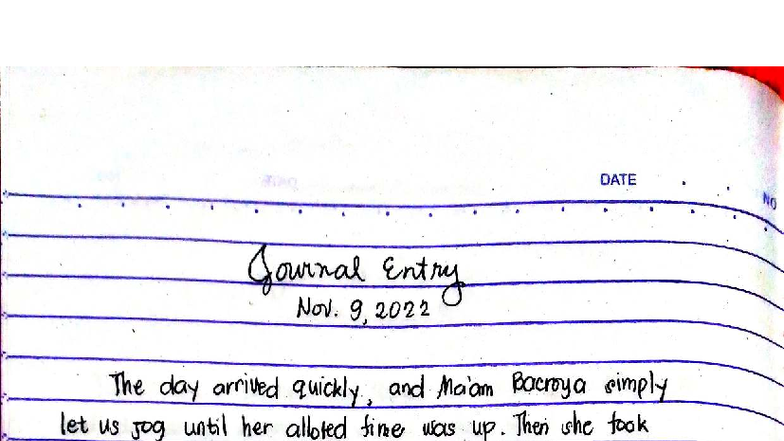 DATE
NO
Journal Entry
Nov. 9, 2022
The day arrived quickly, and Ma'am Bacroya simply
let us jog until her alloted time was up. Then she took